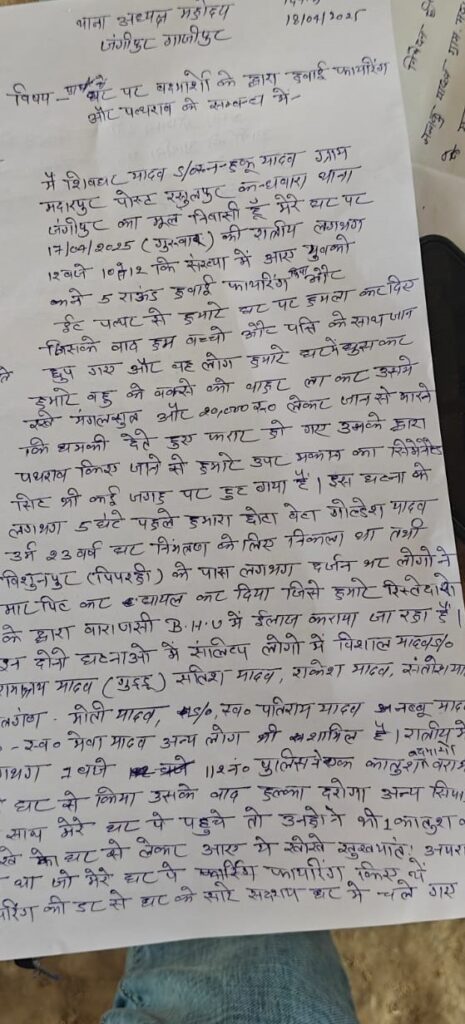 थाना अध्यक्ष महोदय
जंगीपुर गाजीपुर
18/04/2025
विषय - घर पर बदमाशो के द्वारा हवाई फायरिंग
और पत्थराव के सम्बन्ध में-
मैं शिवधर यादव S/o नन्हकू यादव ग्राम
मदारपुर पोस्ट रसुलपुर कन्धवारा थाना
जंगीपुर का मूल निवासी हूँ मेरे घर पर
17/04/2025 (गुरुवार) की रात्रीय लगभग
12 बजे 10 से 12 कि संख्या में आए युवको
5 राऊंड हवाई फायरिंग और
ईट पत्थर से हमारे घर पर हमला कर दिए
जिसके बाद हम बच्चो और पत्नि के साथ जान
छुप गए और वह लोग हमारे घर में घुस कर
हमारे बहु के बक्से को बाहर ला कर उसमे
रखे मंगलसुत्र और 20,000 रु० लेकर जान से मारने
कि धमकी देते हुए फरार हो गए उसके द्वारा
पथराव किए जाने से हमारे उपर मकान का सिमेंटेड
सिट भी कई जगह पर टुट गया है। इस घटना के
लगभग 5 घंटे पहले हमारा छोटा बेटा गोल्डेश यादव
उर्म 23 वर्ष घर निमंत्रण के लिए निकला था तभी
विशुनपुर (पिपरही) के पास लगभग दर्जन भर लोगो ने
मार पिट कर घायल कर दिया जिसे हमारे रिस्तेदारो
के द्वारा वाराणसी B.H.U में ईलाज कराया जा रहा है।
इन दोनो घटनाओ में संलिप्त लोगो में विशाल यादव S/o
यादव (गुड्डू) सतिश यादव, राकेश यादव, संतोष
मोती यादव, S/o, स्व० पतिराम यादव यादव
स्व० मेवा यादव अन्य लोग भी शामिल है। रात्रीय मे
1 बजे 112 नं० पुलिस ने एक कातुश
घर से किया उसके बाद हल्का दरोगा अन्य
साथ मेरे घर पे पहुचे तो उन्होने भी 1 कातुश
घर से लेकर आए थे
था जो मेरे घर पे फायरिंग किए थे
की डर से घर के सारे सदस्य घर मे चले गए